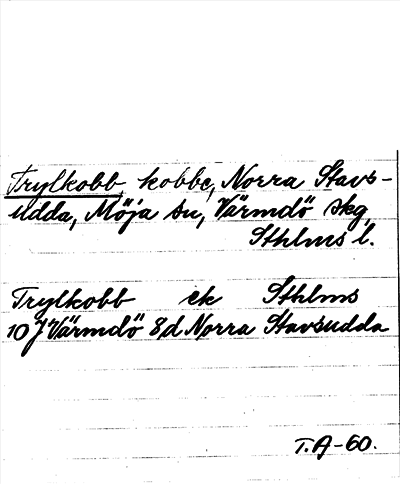 Trylkobb, kobbe, Norra Stavs-
udda, Möja sn, Värmdö skg,
Sthlms l.
Trylkobb ek Sthlms
10J Värmdö 8d Norra Stavsudda
T.A-60.